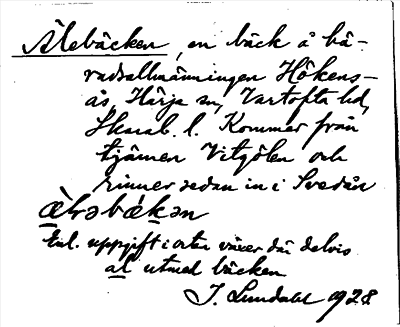 Älebäcken, en bäck å hä-
radsallmänningen Hökens-
ås, Härja sn, Vartofta hd,
Skarab. l. Kommer från
tjärnen Vitgölen och
rinner sedan in i Svedån
Enl. uppgift i orten växer där delvis
al utmed bäcken
J. Lundahl 1928